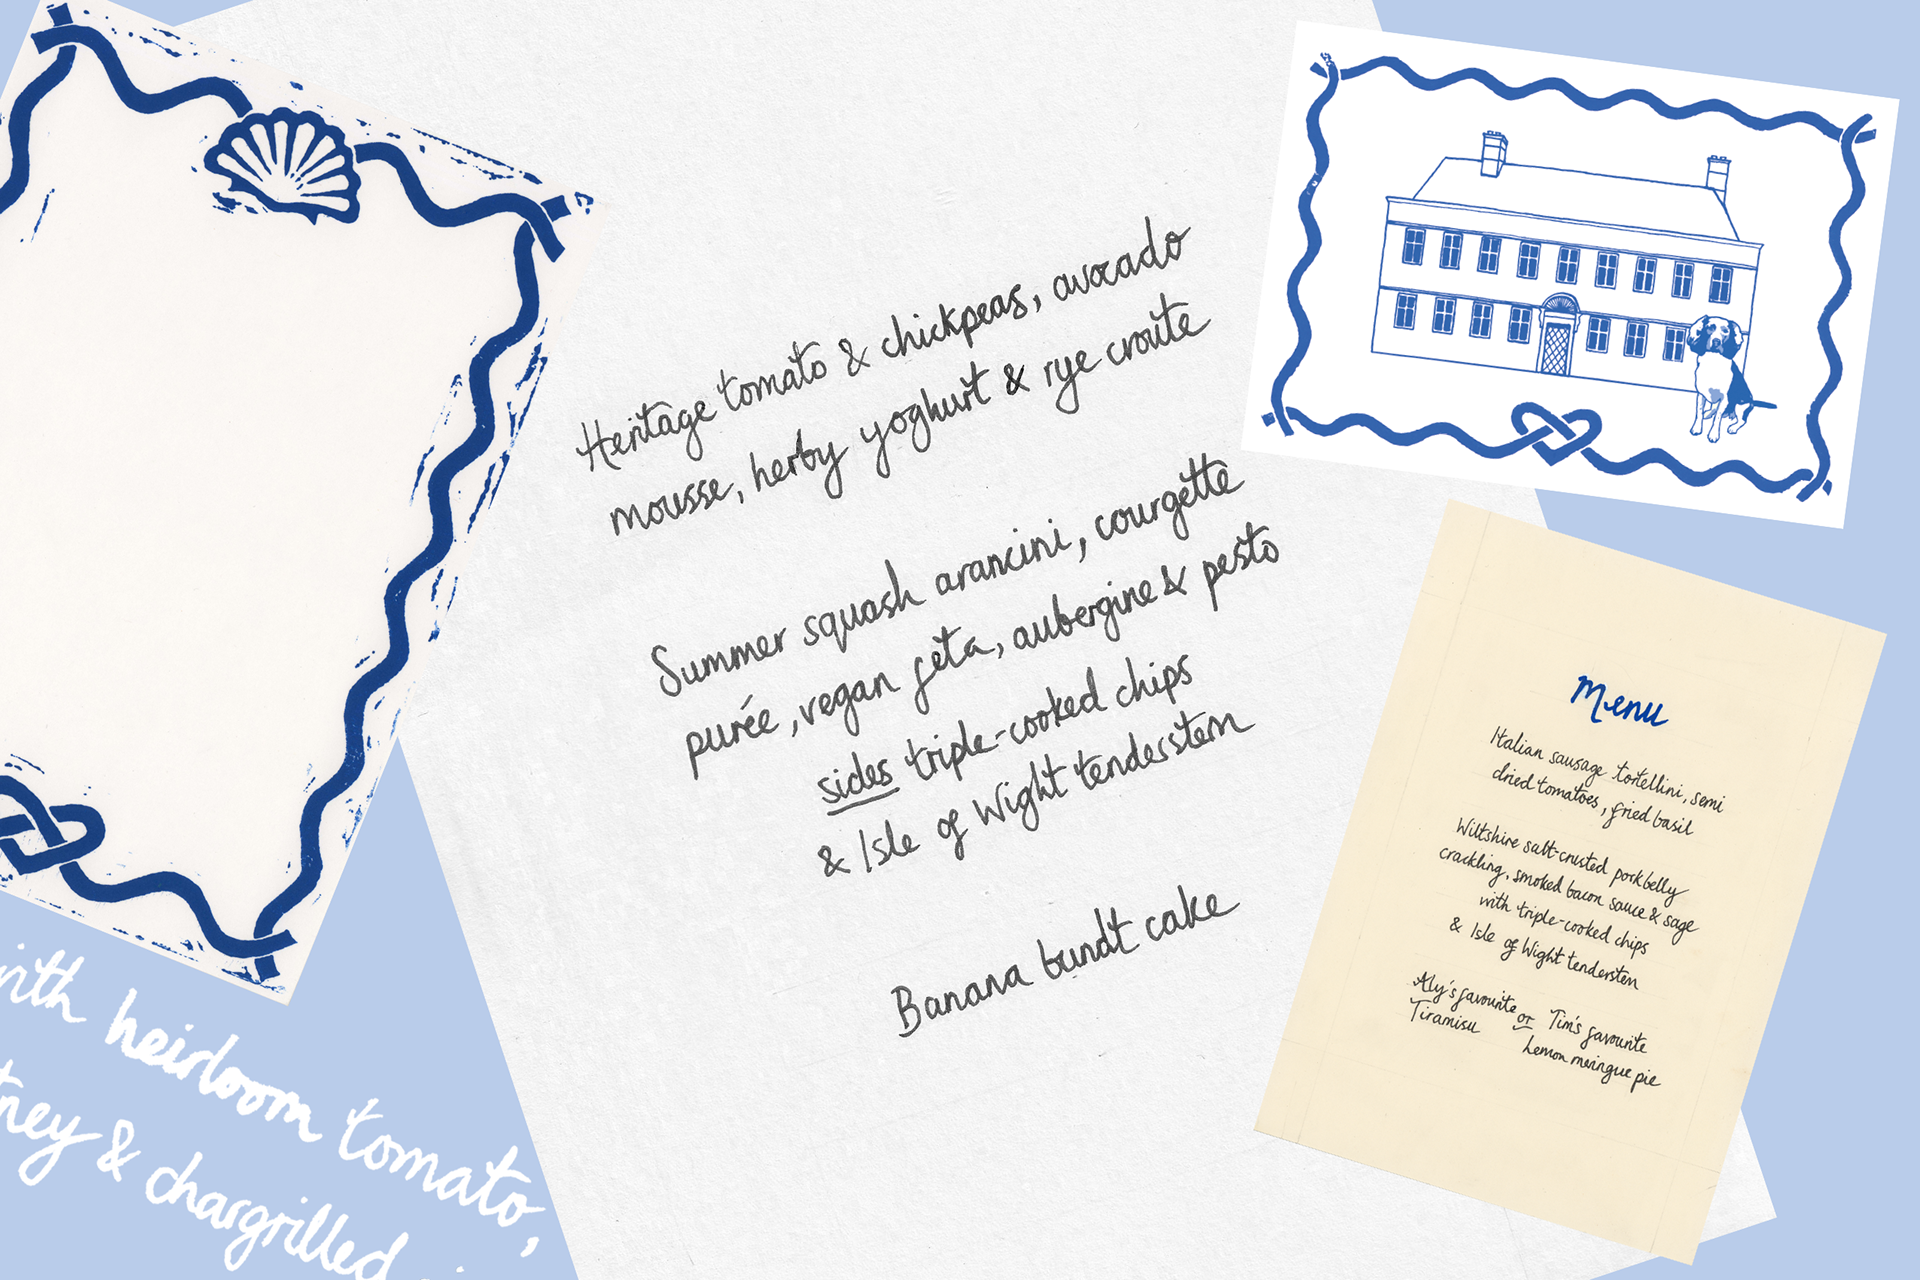 Heritage tomato & chickpeas, avocado
mousse, herby yoghurt & rye croute
Summer squash arancini, courgette
purée, vegan feta, aubergine & pesto
sides triple-cooked chips
& Isle of Wight tenderstem
Banana bundt cake
Menu
Italian sausage tortellini, semi
dried tomatoes, fried basil
Wiltshire salt-crusted pork belly
crackling, smoked bacon sauce & sage
with triple-cooked chips
& Isle of Wight tenderstem
Aly's favourite or Tim's favourite
Tiramisu
Lemon meringue pie
with heirloom tomato,
& chargrilled